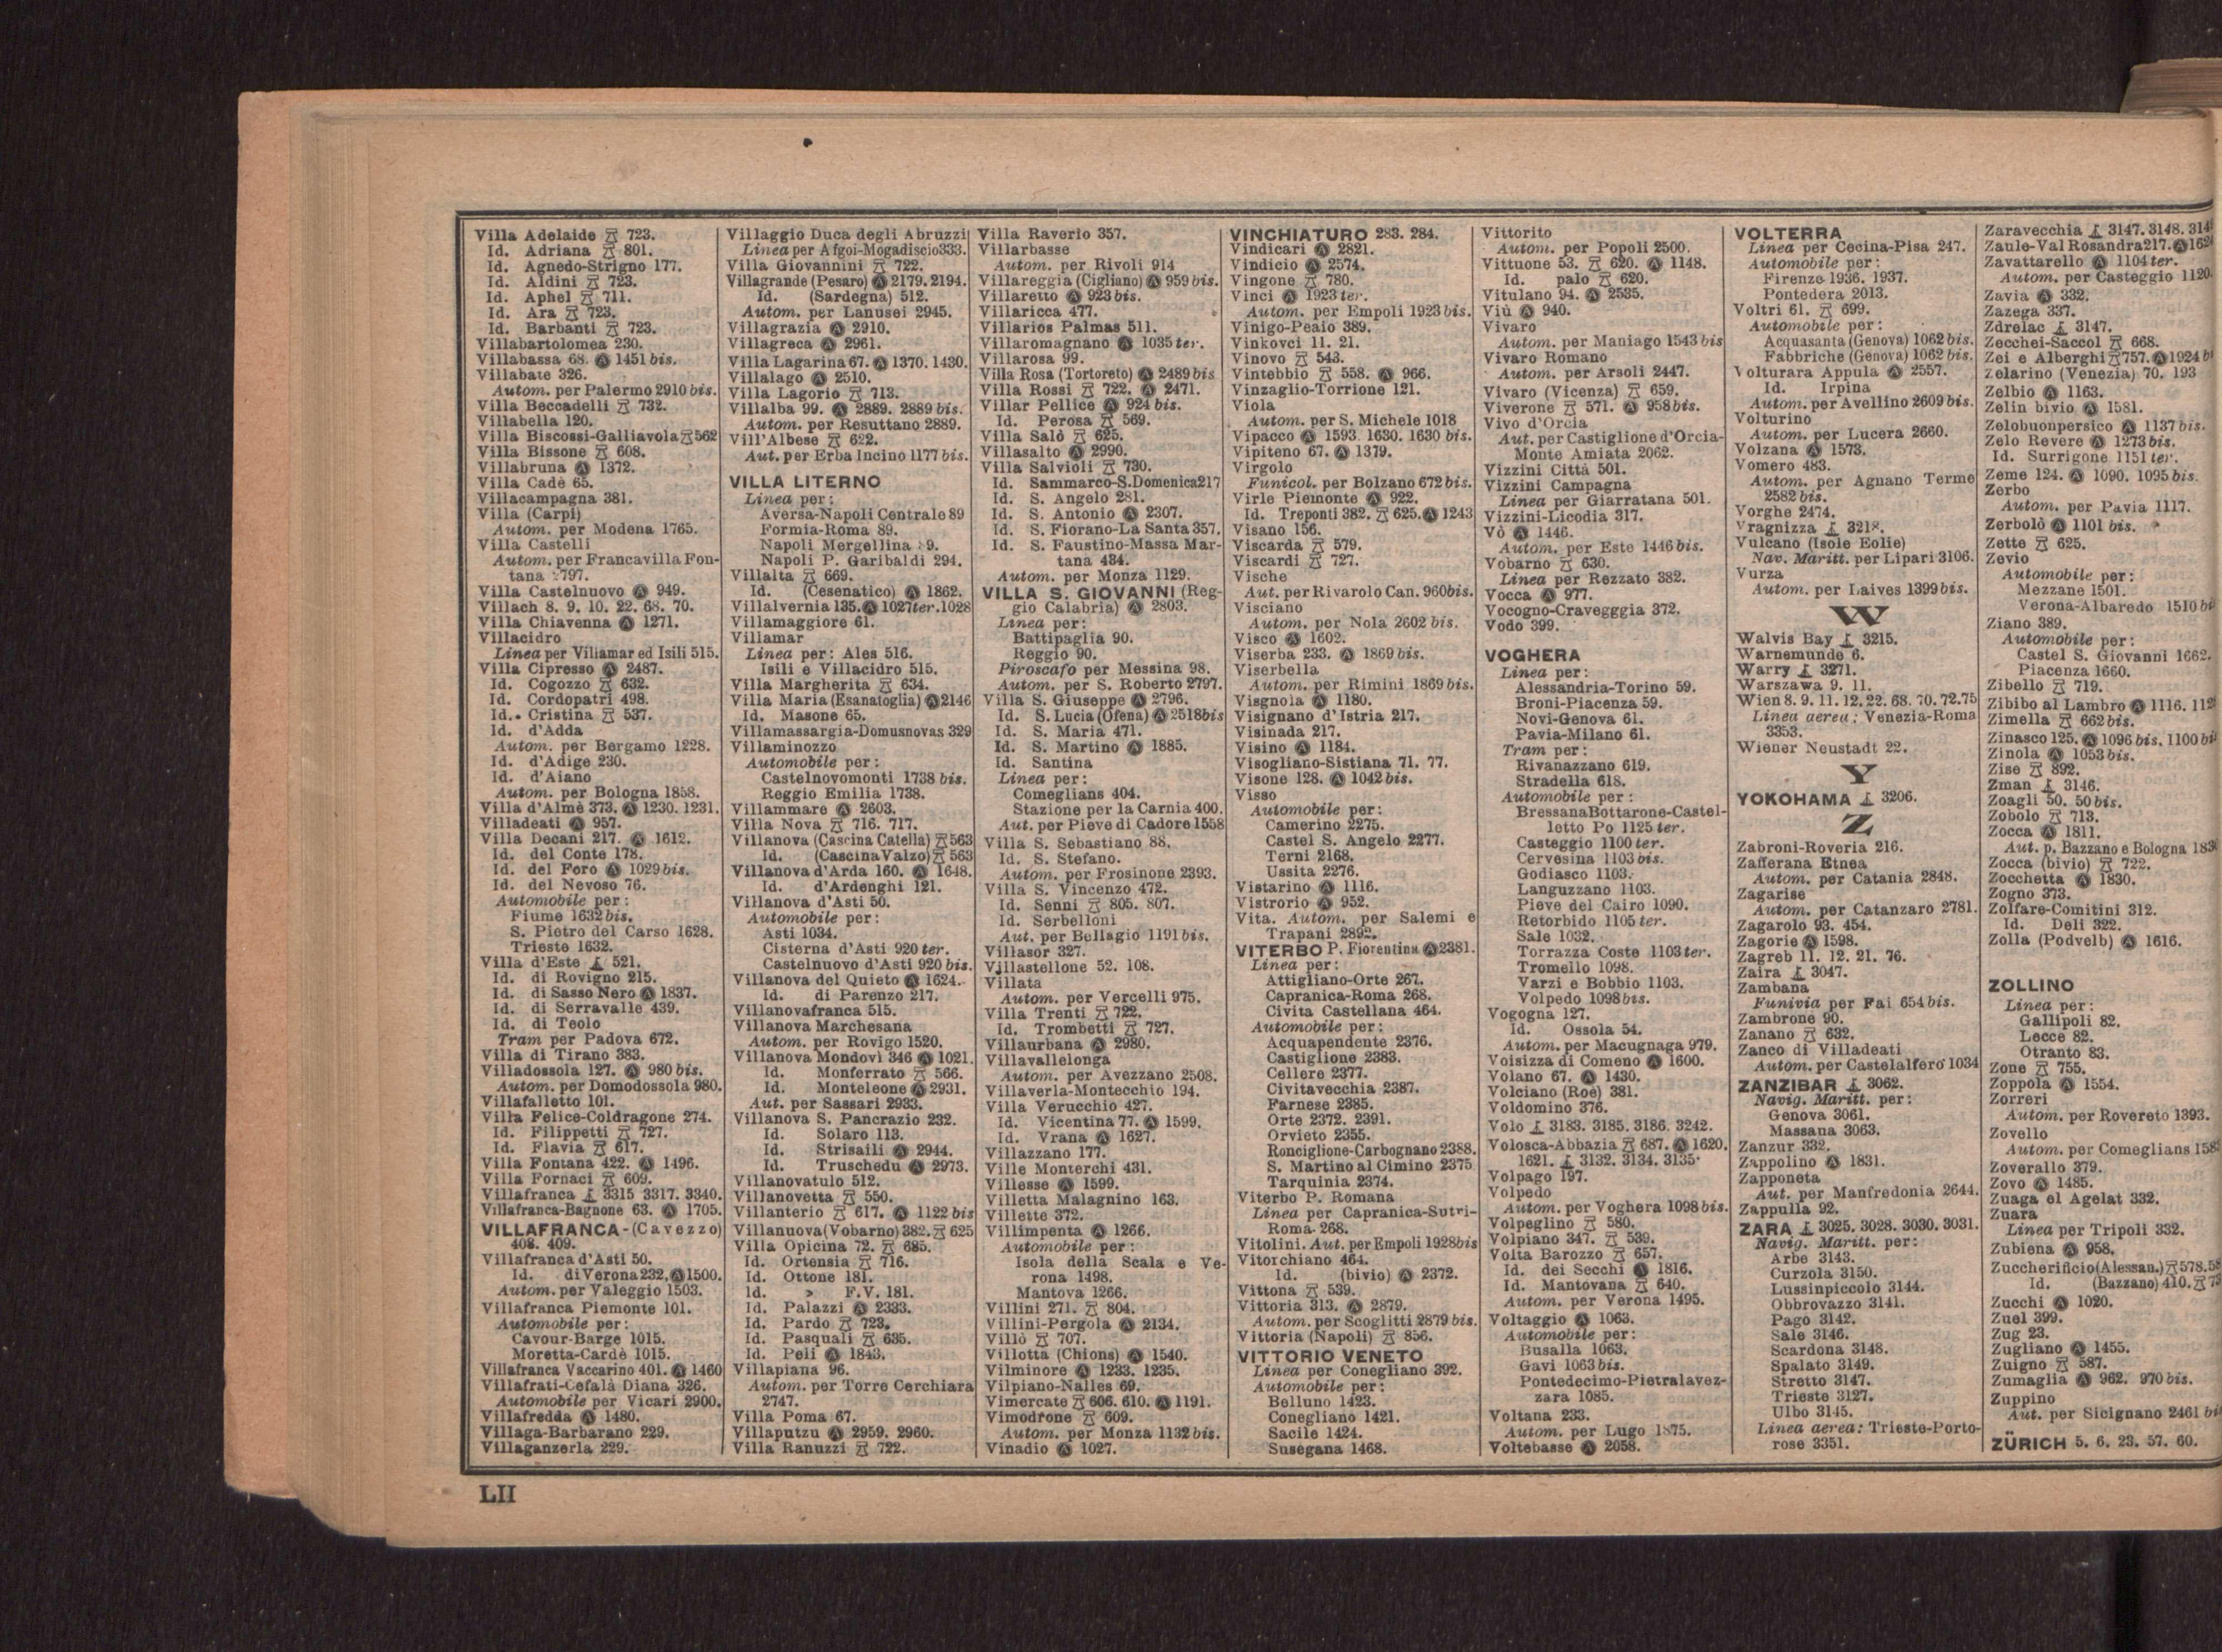 Villa Adelaide 723.
Id. Adriana 801.
Id. Agnedo-Strigno 177.
Id. Aldini 723.
Id. Aphel 711.
Id. Ara 723.
Id. Barbanti 723.
Villabartolomea 230.
Villabassa 68. A 1451 bis.
Villabate 326.
Autom. per Palermo 2910 bis.
Villa Beccadelli 732.
Villabella 120.
Villa Biscossi-Galliavola 562
Villa Bissone 608.
Villabruna A 1372.
Villa Cadè 65.
Villacampagna 381.
Villa (Carpi)
Autom. per Modena 1765.
Villa Castelli
Autom. per Francavilla Fon-
tana 2797.
Villa Castelnuovo A 949.
Villach 8. 9. 10. 22. 68. 70.
Villa Chiavenna A 1271.
Villacidro
Linea per Villamar ed Isili 515.
Villa Cipresso A 2487.
Id. Cogozzo 632.
Id. Cordopatri 498.
Id. Cristina 537.
Id. d'Adda
Autom. per Bergamo 1228.
Id. d'Adige 230.
Id. d'Aiano
Autom. per Bologna 1858.
Villa d'Almè 373. A 1230. 1231.
Villadeati A 957.
Villa Decani 217. A 1612.
Id. del Conte 178.
Id. del Foro A 1029 bis.
Id. del Nevoso 76.
Automobile per:
Fiume 1632 bis.
S. Pietro del Carso 1628.
Trieste 1632.
Villa d'Este 521.
Id. di Rovigno 215.
Id. di Sasso Nero A 1837.
Id. di Serravalle 439.
Id. di Teolo
Tram per Padova 672.
Villa di Tirano 383.
Villadossola 127. A 980 bis.
Autom. per Domodossola 980.
Villafalletto 101.
Villa Felice-Coldragone 274.
Id. Filippetti 727.
Id. Flavia 617.
Villa Fontana 422. A 1496.
Villa Fornaci 609.
Villafranca 3315 3317. 3340.
Villafranca-Bagnone 63. A 1705.
VILLAFRANCA-(Cavezzo)
408. 409.
Villafranca d'Asti 50.
Id. di Verona 232. A 1500.
Autom. per Valeggio 1503.
Villafranca Piemonte 101.
Automobile per:
Cavour-Barge 1015.
Moretta-Cardè 1015.
Villafranca Vaccarino 401. A 1460
Villafrati-Cefalà Diana 326.
Automobile per Vicari 2900.
Villafredda A 1480.
Villaga-Barbarano 229.
Villaganzerla 229.
Villaggio Duca degli Abruzzi
Linea per Afgoi-Mogadiscio 333.
Villa Giovannini 722.
Villagrande (Pesaro) A 2179. 2194.
Id. (Sardegna) 512.
Autom. per Lanusei 2945.
Villagrazia A 2910.
Villagreca A 2961.
Villa Lagarina 67. A 1370. 1430.
Villalago A 2510.
Villa Lagorio 713.
Villalba 99. A 2889. 2889 bis.
Autom. per Resuttano 2889.
Vill'Albese 622.
Aut. per Erba Incino 1177 bis.
VILLA LITERNO
Linea per:
Aversa-Napoli Centrale 89
Formia-Roma 89.
Napoli Mergellina 89.
Napoli P. Garibaldi 294.
Villalta 669.
Id. (Cesenatico) A 1862.
Villalvernia 135. A 1027 ter. 1028
Villamaggiore 61.
Villamar
Linea per: Ales 516.
Isili e Villacidro 515.
Villa Margherita 634.
Villa Maria (Esanatoglia) A 2146
Id. Masone 65.
Villamassargia-Domusnovas 329
Villaminozzo
Automobile per:
Castelnovomonti 1738 bis.
Reggio Emilia 1738.
Villammare A 2603.
Villa Nova 716. 717.
Villanova (Cascina Catella) 563
Id. (Cascina Valzo) 563
Villanova d'Arda 160. A 1648.
Id. d'Ardenghi 121.
Villanova d'Asti 50.
Automobile per:
Asti 1034.
Cisterna d'Asti 920 ter.
Castelnuovo d'Asti 920 bis.
Villanova del Quieto A 1624.
Id. di Parenzo 217.
Villanovafranca 515.
Villanova Marchesana
Autom. per Rovigo 1520.
Villanova Mondovì 346 A 1021.
Id. Monferrato 566.
Id. Monteleone A 2931.
Aut. per Sassari 2933.
Villanova S. Pancrazio 232.
Id. Solaro 113.
Id. Strisaili A 2944.
Id. Truschedu A 2973.
Villanovatulo 512.
Villanovetta 550.
Villanterio 617. A 1122 bis
Villanuova (Vobarno) 382. 625
Villa Opicina 72. 685.
Id. Ortensia 716.
Id. Ottone 181.
Id. » F.V. 181.
Id. Palazzi A 2333.
Id. Pardo 723.
Id. Pasquali 635.
Id. Peli A 1843.
Villapiana 96.
Autom. per Torre Cerchiara
2747.
Villa Poma 67.
Villaputzu A 2959. 2960.
Villa Ranuzzi 722.
Villa Raverio 357.
Villarbasse
Autom. per Rivoli 914
Villareggia (Cigliano) A 959 bis.
Villaretto A 923 bis.
Villaricca 477.
Villarios Palmas 511.
Villaromagnano A 1035 ter.
Villarosa 99.
Villa Rosa (Tortoreto) A 2489 bis
Villa Rossi 722. A 2471.
Villar Pellice A 924 bis.
Id. Perosa 569.
Villa Salò 625.
Villasalto A 2990.
Villa Salvioli 730.
Id. Sammarco-S.Domenica 217
Id. S. Angelo 281.
Id. S. Antonio A 2307.
Id. S. Fiorano-La Santa 357.
Id. S. Faustino-Massa Mar-
tana 484.
Autom. per Monza 1129.
VILLA S. GIOVANNI (Reg-
gio Calabria) A 2803.
Linea per:
Battipaglia 90.
Reggio 90.
Piroscafo per Messina 98.
Autom. per S. Roberto 2797.
Villa S. Giuseppe A 2796.
Id. S. Lucia (Ofena) A 2518 bis
Id. S. Maria 471.
Id. S. Martino A 1885.
Id. Santina
Linea per:
Comeglians 404.
Stazione per la Carnia 400.
Aut. per Pieve di Cadore 1558
Villa S. Sebastiano 88.
Id. S. Stefano.
Autom. per Frosinone 2393.
Villa S. Vincenzo 472.
Id. Senni 805. 807.
Id. Serbelloni
Aut. per Bellagio 1191 bis.
Villasor 327.
Villastellone 52. 108.
Villata
Autom. per Vercelli 975.
Villa Trenti 722.
Id. Trombetti 727.
Villaurbana A 2980.
Villavallelonga
Autom. per Avezzano 2508.
Villaverla-Montecchio 194.
Villa Verucchio 427.
Id. Vicentina 77. A 1599.
Id. Vrana A 1627.
Villazzano 177.
Ville Monterchi 431.
Villesse A 1599.
Villetta Malagnino 163.
Villette 372.
Villimpenta A 1266.
Automobile per:
Isola della Scala e Ve-
rona 1498.
Mantova 1266.
Villini 271. 804.
Villini-Pergola A 2134.
Villò 707.
Villotta (Chions) A 1540.
Vilminore A 1233. 1235.
Vilpiano-Nalles 69.
Vimercate 606. 610. A 1191.
Vimodrone 609.
Autom. per Monza 1132 bis.
Vinadio A 1027.
VINCHIATURO 283. 284.
Vindicari A 2821.
Vindicio A 2574.
Vingone 780.
Vinci A 1923 ter.
Autom. per Empoli 1923 bis.
Vinigo-Peaio 389.
Vinkovci 11. 21.
Vinovo 543.
Vintebbio 558. A 966.
Vinzaglio-Torrione 121.
Viola
Autom. per S. Michele 1018
Vipacco A 1593. 1630. 1630 bis.
Vipiteno 67. A 1379.
Virgolo
Funicol. per Bolzano 672 bis.
Virle Piemonte A 922.
Id. Treponti 382. 625. A 1243
Visano 156.
Viscarda 579.
Viscardi 727.
Vische
Aut. per Rivarolo Can. 960 bis.
Visciano
Autom. per Nola 2602 bis.
Visco A 1602.
Viserba 233. A 1869 bis.
Viserbella
Autom. per Rimini 1869 bis.
Visgnola A 1180.
Visignano d'Istria 217.
Visinada 217.
Visino A 1184.
Visogliano-Sistiana 71. 77.
Visone 128. A 1042 bis.
Visso
Automobile per:
Camerino 2275.
Castel S. Angelo 2277.
Terni 2168.
Ussita 2276.
Vistarino A 1116.
Vistrorio A 952.
Vita. Autom. per Salemi e
Trapani 2892.
VITERBO P. Fiorentina A 2381.
Linea per:
Attigliano-Orte 267.
Capranica-Roma 268.
Civita Castellana 464.
Automobile per:
Acquapendente 2376.
Castiglione 2383.
Cellere 2377.
Civitavecchia 2387.
Farnese 2385.
Orte 2372. 2391.
Orvieto 2355.
Ronciglione-Carbognano 2388.
S. Martino al Cimino 2375
Tarquinia 2374.
Viterbo P. Romana
Linea per Capranica-Sutri-
Roma 268.
Vitolini. Aut. per Empoli 1928 bis
Vitorchiano 464.
Id. (bivio) A 2372.
Vittona 539.
Vittoria 313. A 2879.
Autom. per Scoglitti 2879 bis.
Vittoria (Napoli) 856.
VITTORIO VENETO
Linea per Conegliano 392.
Automobile per:
Belluno 1423.
Conegliano 1421.
Sacile 1424.
Susegana 1468.
Vittorito
Autom. per Popoli 2500.
Vittuone 53. 620. A 1148.
Id. palo 620.
Vitulano 94. A 2535.
Viù A 940.
Vivaro
Autom. per Maniago 1543 bis
Vivaro Romano
Autom. per Arsoli 2447.
Vivaro (Vicenza) 659.
Viverone 571. A 958 bis.
Vivo d'Orcia
Aut. per Castiglione d'Orcia-
Monte Amiata 2062.
Vizzini Città 501.
Vizzini Campagna
Linea per Giarratana 501.
Vizzini-Licodia 317.
Vò A 1446.
Autom. per Este 1446 bis.
Vobarno 630.
Linea per Rezzato 382.
Vocca A 977.
Vocogno-Cravegggia 372.
Vodo 399.
VOGHERA
Linea per:
Alessandria-Torino 59.
Broni-Piacenza 59.
Novi-Genova 61.
Pavia-Milano 61.
Tram per:
Rivanazzano 619.
Stradella 618.
Automobile per:
BressanaBottarone-Castel-
letto Po 1125 ter.
Casteggio 1100 ter.
Cervesina 1103 bis.
Godiasco 1103.
Languzzano 1103.
Pieve del Cairo 1090.
Retorbido 1105 ter.
Sale 1032.
Torrazza Coste 1103 ter.
Tromello 1098.
Varzi e Bobbio 1103.
Volpedo 1098 bis.
Vogogna 127.
Id. Ossola 54.
Autom. per Macugnaga 979.
Voisizza di Comeno A 1600.
Volano 67. A 1430.
Volciano (Roè) 381.
Voldomino 376.
Volo 3183. 3185. 3186. 3242.
Volosca-Abbazia 687. A 1620.
1621. 3132. 3134. 3135.
Volpago 197.
Volpedo
Autom. per Voghera 1098 bis.
Volpeglino 580.
Volpiano 347. 539.
Volta Barozzo 657.
Id. dei Secchi A 1816.
Id. Mantovana 640.
Autom. per Verona 1495.
Voltaggio A 1063.
Automobile per:
Busalla 1063.
Gavi 1063 bis.
Pontedecimo-Pietralavez-
zara 1085.
Voltana 233.
Autom. per Lugo 1875.
Voltebasse A 2058.
VOLTERRA
Linea per Cecina-Pisa 247.
Automobile per:
Firenze 1936. 1937.
Pontedera 2013.
Voltri 61. 699.
Automobile per:
Acquasanta (Genova) 1062 bis.
Fabbriche (Genova) 1062 bis.
Volturara Appula A 2557.
Id. Irpina
Autom. per Avellino 2609 bis.
Volturino
Autom. per Lucera 2660.
Volzana A 1573.
Vomero 483.
Autom. per Agnano Terme
2582 bis.
Vorghe 2474.
Vragnizza 3218.
Vulcano (Isole Eolie)
Nav. Maritt. per Lipari 3106.
Vurza
Autom. per Laives 1399 bis.
W
Walvis Bay 3215.
Warnemunde 6.
Warry 3271.
Warszawa 9. 11.
Wien 8. 9. 11. 12. 22. 68. 70. 72. 75
Linea aerea: Venezia-Roma
3353.
Wiener Neustadt 22.
Y
YOKOHAMA 3206.
Z
Zabroni-Roveria 216.
Zafferana Etnea
Autom. per Catania 2848.
Zagarise
Autom. per Catanzaro 2781.
Zagarolo 93. 454.
Zagorie A 1598.
Zagreb 11. 12. 21. 76.
Zaira 3047.
Zambana
Funivia per Fai 654 bis.
Zambrone 90.
Zanano 632.
Zanco di Villadeati
Autom. per Castelalfero 1034
ZANZIBAR 3062.
Navig. Maritt. per:
Genova 3061.
Massaua 3063.
Zanzur 332.
Zappolino A 1831.
Zapponeta
Aut. per Manfredonia 2644.
Zappulla 92.
ZARA 3025. 3028. 3030. 3031.
Navig. Maritt. per:
Arbe 3143.
Curzola 3150.
Lussinpiccolo 3144.
Obbrovazzo 3141.
Pago 3142.
Sale 3146.
Scardona 3148.
Spalato 3149.
Stretto 3147.
Trieste 3127.
Ulbo 3145.
Linea aerea: Trieste-Porto-
rose 3351.
Zaravecchia 3147. 3148. 314
Zaule-Val Rosandra 217. A 162
Zavattarello A 1104 ter.
Autom. per Casteggio 1120.
Zavia A 332.
Zazega 337.
Zdrelac 3147.
Zecchei-Saccol 668.
Zei e Alberghi 757. A 1924 b
Zelarino (Venezia) 70. 193
Zelbio A 1163.
Zelin bivio A 1581.
Zelobuonpersico A 1137 bis.
Zelo Revere A 1273 bis.
Id. Surrigone 1151 ter.
Zeme 124. A 1090. 1095 bis.
Zerbo
Autom. per Pavia 1117.
Zerbolò A 1101 bis.
Zette 625.
Zevio
Automobile per:
Mezzane 1501.
Verona-Albaredo 1510 bi
Ziano 389.
Automobile per:
Castel S. Giovanni 1662.
Piacenza 1660.
Zibello 719.
Zibibo al Lambro A 1116. 112
Zimella 662 bis.
Zinasco 125. A 1096 bis. 1100 bi
Zinola A 1053 bis.
Zise 892.
Zman 3146.
Zoagli 50. 50 bis.
Zobolo 713.
Zocca A 1811.
Aut. p. Bazzano e Bologna 183
Zocca (bivio) 722.
Zocchetta A 1830.
Zogno 373.
Zolfare-Comitini 312.
Id. Deli 322.
Zolla (Podvelb) A 1616.
ZOLLINO
Linea per:
Gallipoli 82.
Lecce 82.
Otranto 83.
Zone 755.
Zoppola A 1554.
Zorreri
Autom. per Rovereto 1393.
Zovello
Autom. per Comeglians 158
Zoverallo 379.
Zovo A 1485.
Zuaga el Agelat 332.
Zuara
Linea per Tripoli 332.
Zubiena A 958.
Zuccherificio (Alessan.) 578. 58
Id. (Bazzano) 410. 73
Zucchi A 1020.
Zuel 399.
Zug 23.
Zugliano A 1455.
Zuigno 587.
Zumaglia A 962. 970 bis.
Zuppino
Aut. per Sicignano 2461 bi
ZÜRICH 5. 6. 23. 57. 60.
LII